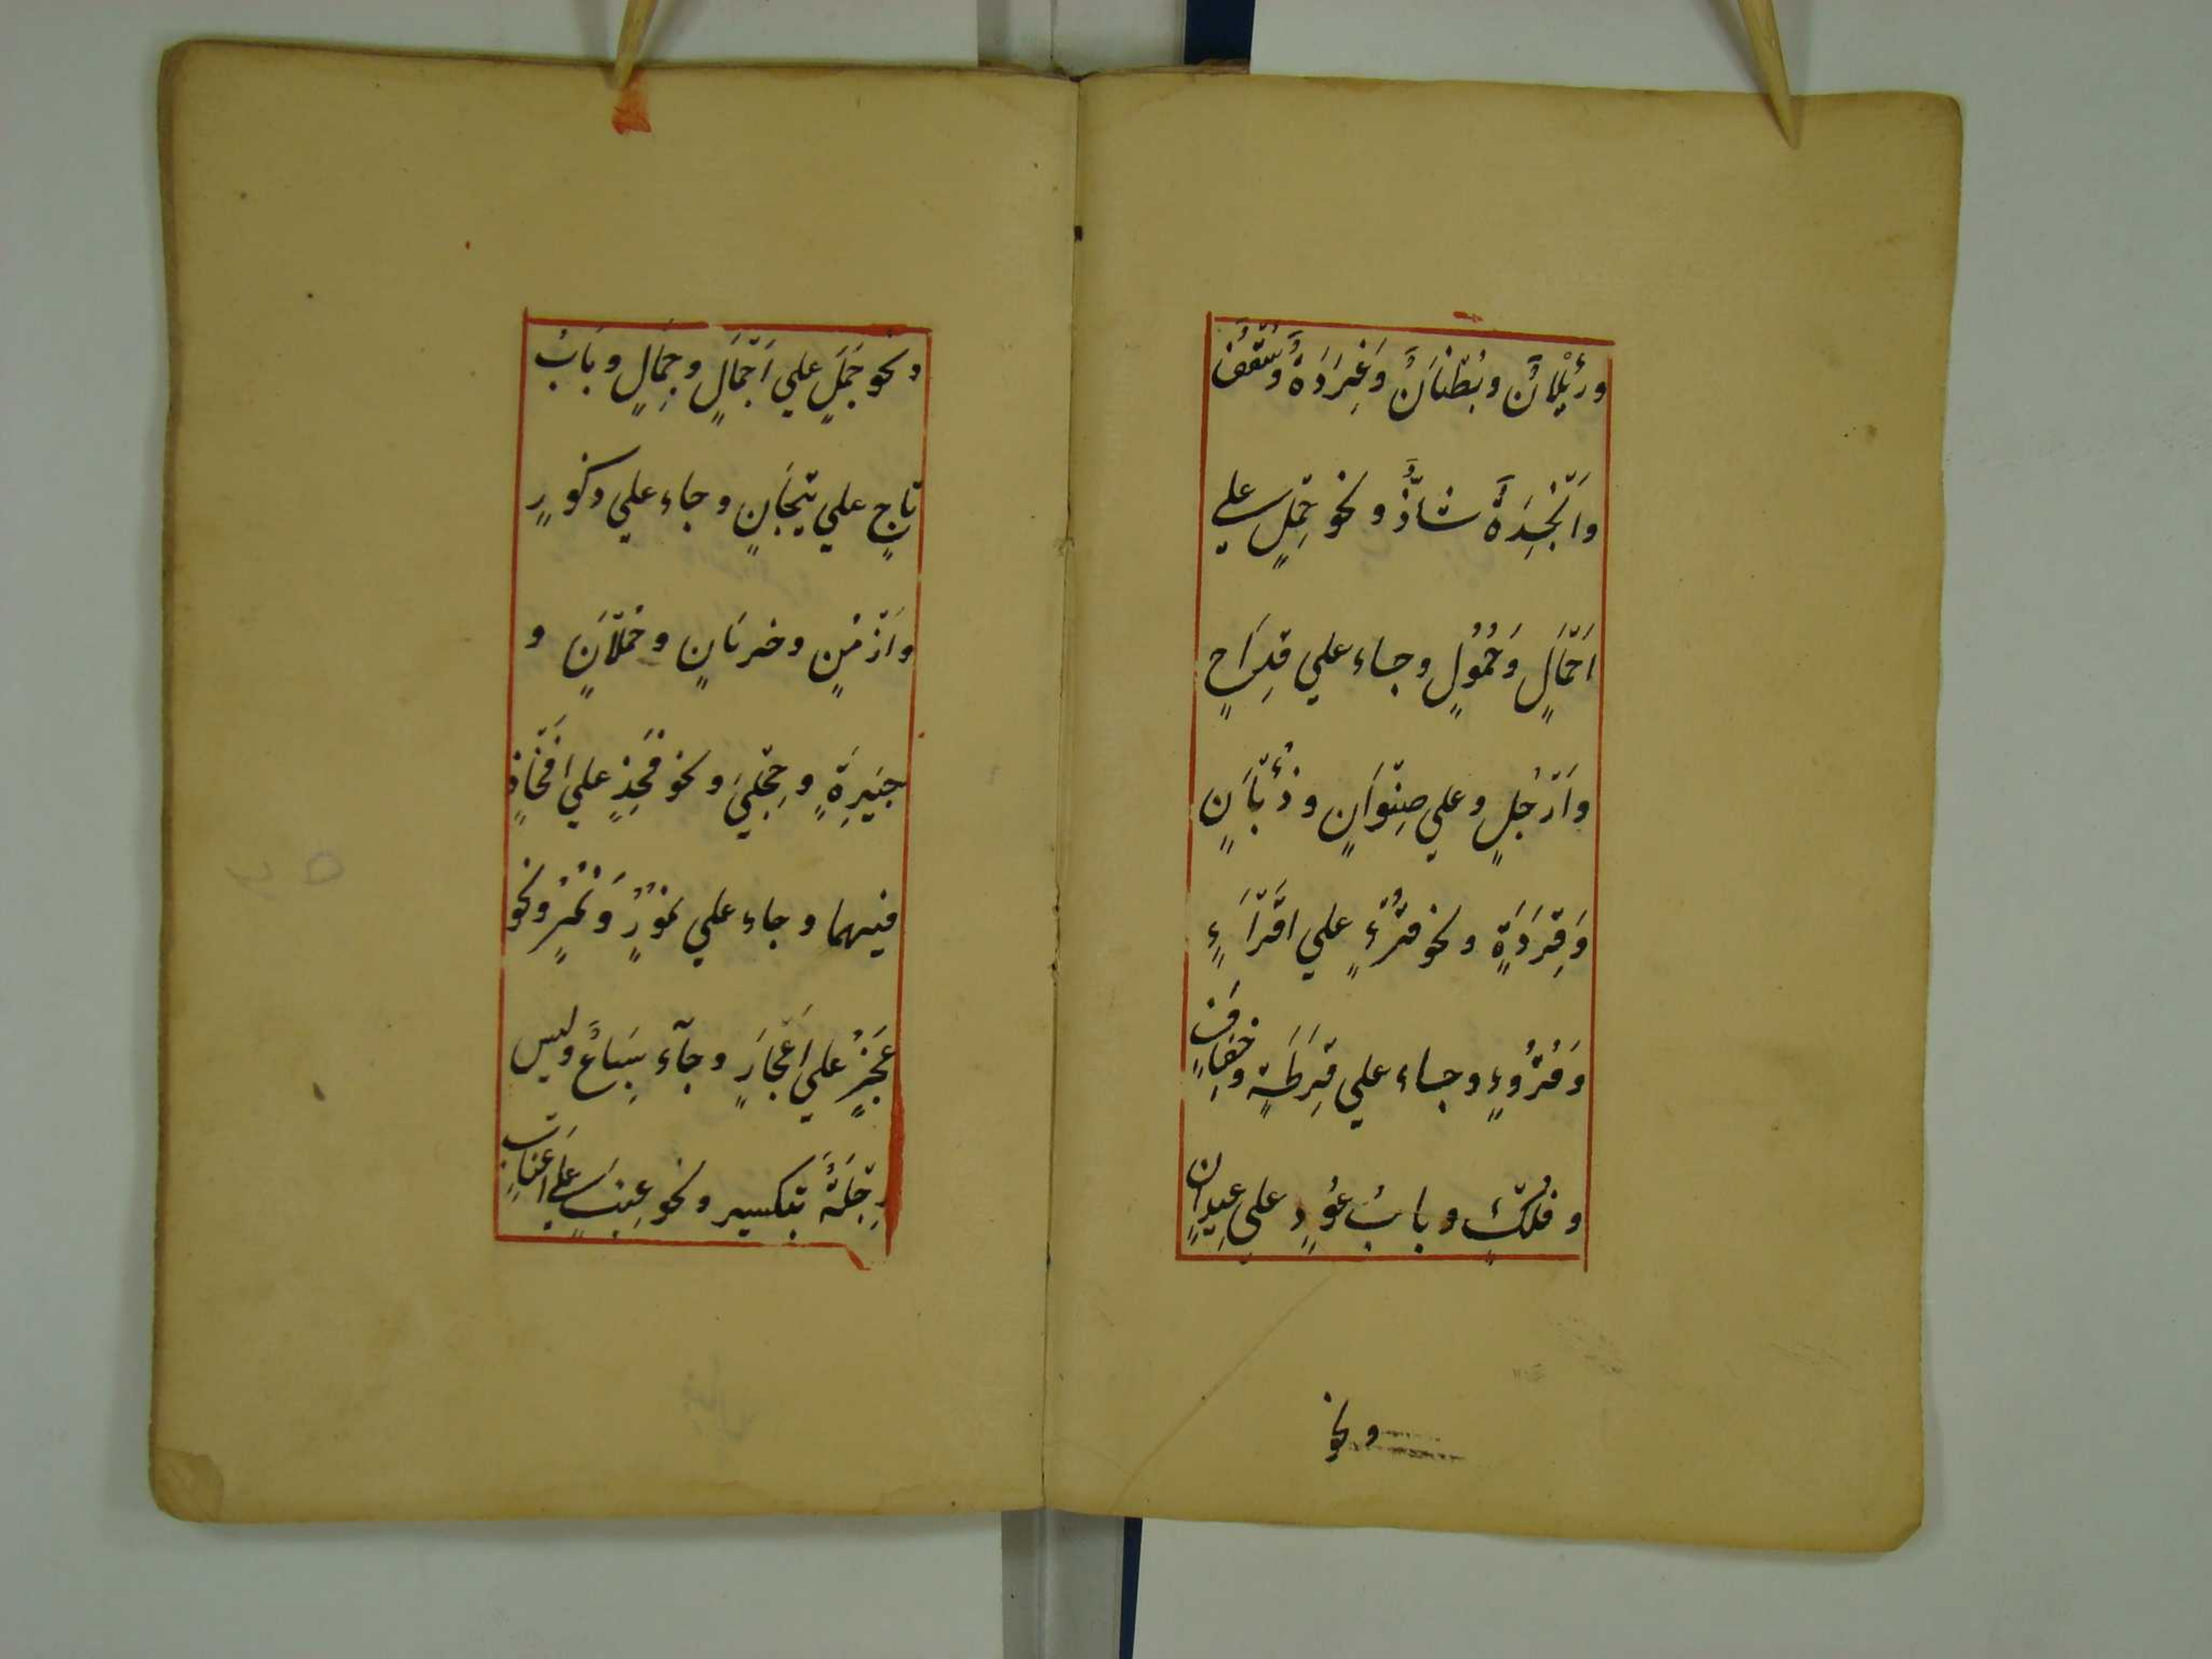 ورِئْلَانٌ وبُطْنَانٌ وَغِرَدَةٌ وَسُقُفٌ
واَنْجِدَةٌ شَاذٌّ ونحو حِمْلٍ علے
اَحْمَالٍ وَحُمُولٍ وجاء علي قِدَاحٍ
واَرْجُلٍ وعلي صِنْوَانٍ وذُؤْبَانٍ
وَقِرَدَةٍ ونحو قُرْءٍ علي اقْرَاءٍ
وَقُرُوءٍ وجاء علي قِرَطَةٍ وخِفَافٍ
وفُلْكٍ وبابُ عُودٍ علي عِيدانٍ
ونحو
ونحو جَمَلٍ علي اَجْمَالٍ وجِمَالٍ وبَابُ
تاجٍ علي تِيجَانٍ وجاء علي ذكورٍ
واَزْمُنٍ وخربَانٍ وحُمْلَانٍ و
جيَرِةٍ وحِجْلَيٰ ونحو فَخِذٍ علي اَفْخَاذٍ
فيهما وجاء علي نُمُورٍ وَنُمُرٍ ونحو
عَجُزٍ علي اَعْجَازٍ وجآء سِبَاعٌ وليس
رِجْلَةٌ بتَكسير ونحو عِنَبٍ علے اَعْنَابٍ